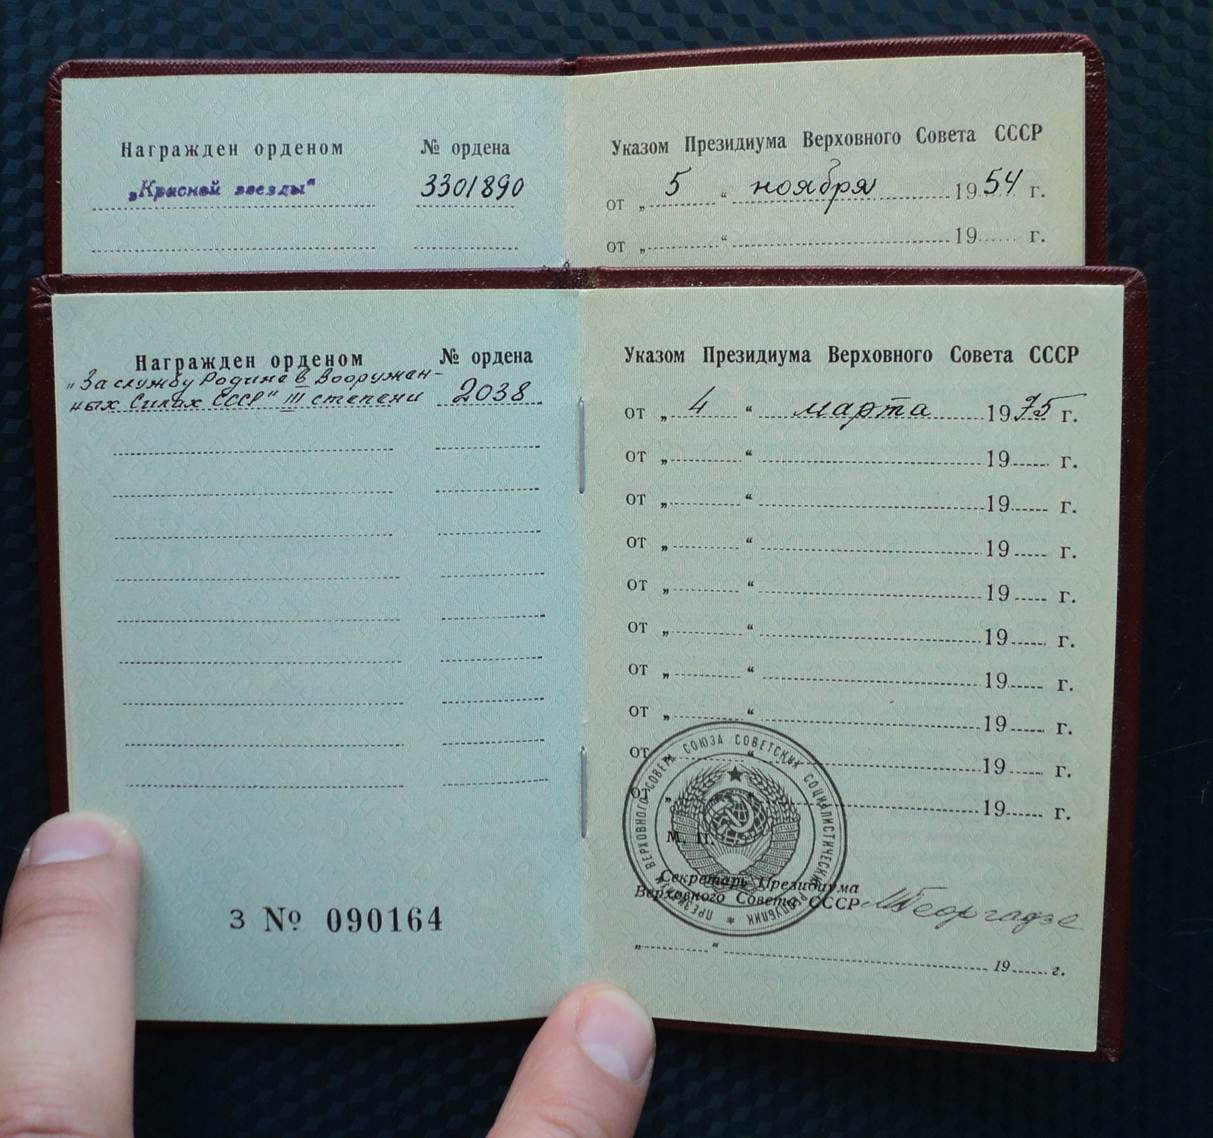 Награжден орденом № ордена Указом Президиума Верховного Совета СССР
„Красной звезды“ 3301890 от „ 5 “ ноября 1954 г.
от „ “ 19 г.
Награжден орденом № ордена Указом Президиума Верховного Совета СССР
„За службу Родине в Вооружен-
ных Силах СССР“ III степени 2038 от „ 4 “ марта 1975 г.
от „ “ 19 г.
от „ “ 19 г.
от „ “ 19 г.
от „ “ 19 г.
от „ “ 19 г.
от „ “ 19 г.
от „ “ 19 г.
от „ “ 19 г.
от „ “ 19 г.
ПРЕЗИДИУМ ВЕРХОВНОГО СОВЕТА СОЮЗА СОВЕТСКИХ СОЦИАЛИСТИЧЕСКИХ РЕСПУБЛИК
М. П.
Секретарь Президиума
Верховного Совета СССР МГеоргадзе
З № 090164
„ “ 19 г.